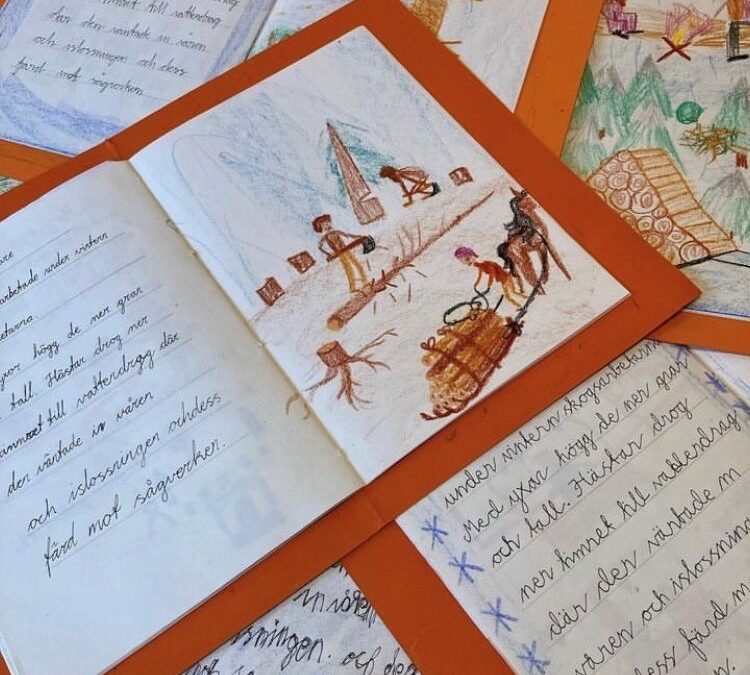 till vattendrag
där den väntade in våren
och islossningen och dess
färd mot sågverken
are
arbetade under vintern
etarna
högg de ner gran
tall. Hästar drog ner
till vattendrag där
der väntade in våren
och islossningen ochdess
färd mot sågverken.
under vintern skogsarbetarna
Med yxor högg de ner gran
och tall. Hästar drog
ner himret till vattendrag
där den väntade in
våren och islossnin
dess färd m
n.
in
sningen. och des